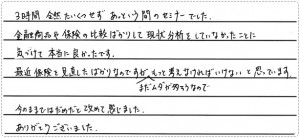 3時間 全然たいくつせず あっという間のセミナーでした。
金融商品や保険の比較ばかりして現状分析をしていなかったことに
気づけて本当に良かったです。
最近保険を見直したばかりなのですが、もっと考えなければいけないと思っています。
まだムダが多そうなので
今のままではだめだと改めて感じました。
ありがとうございました。